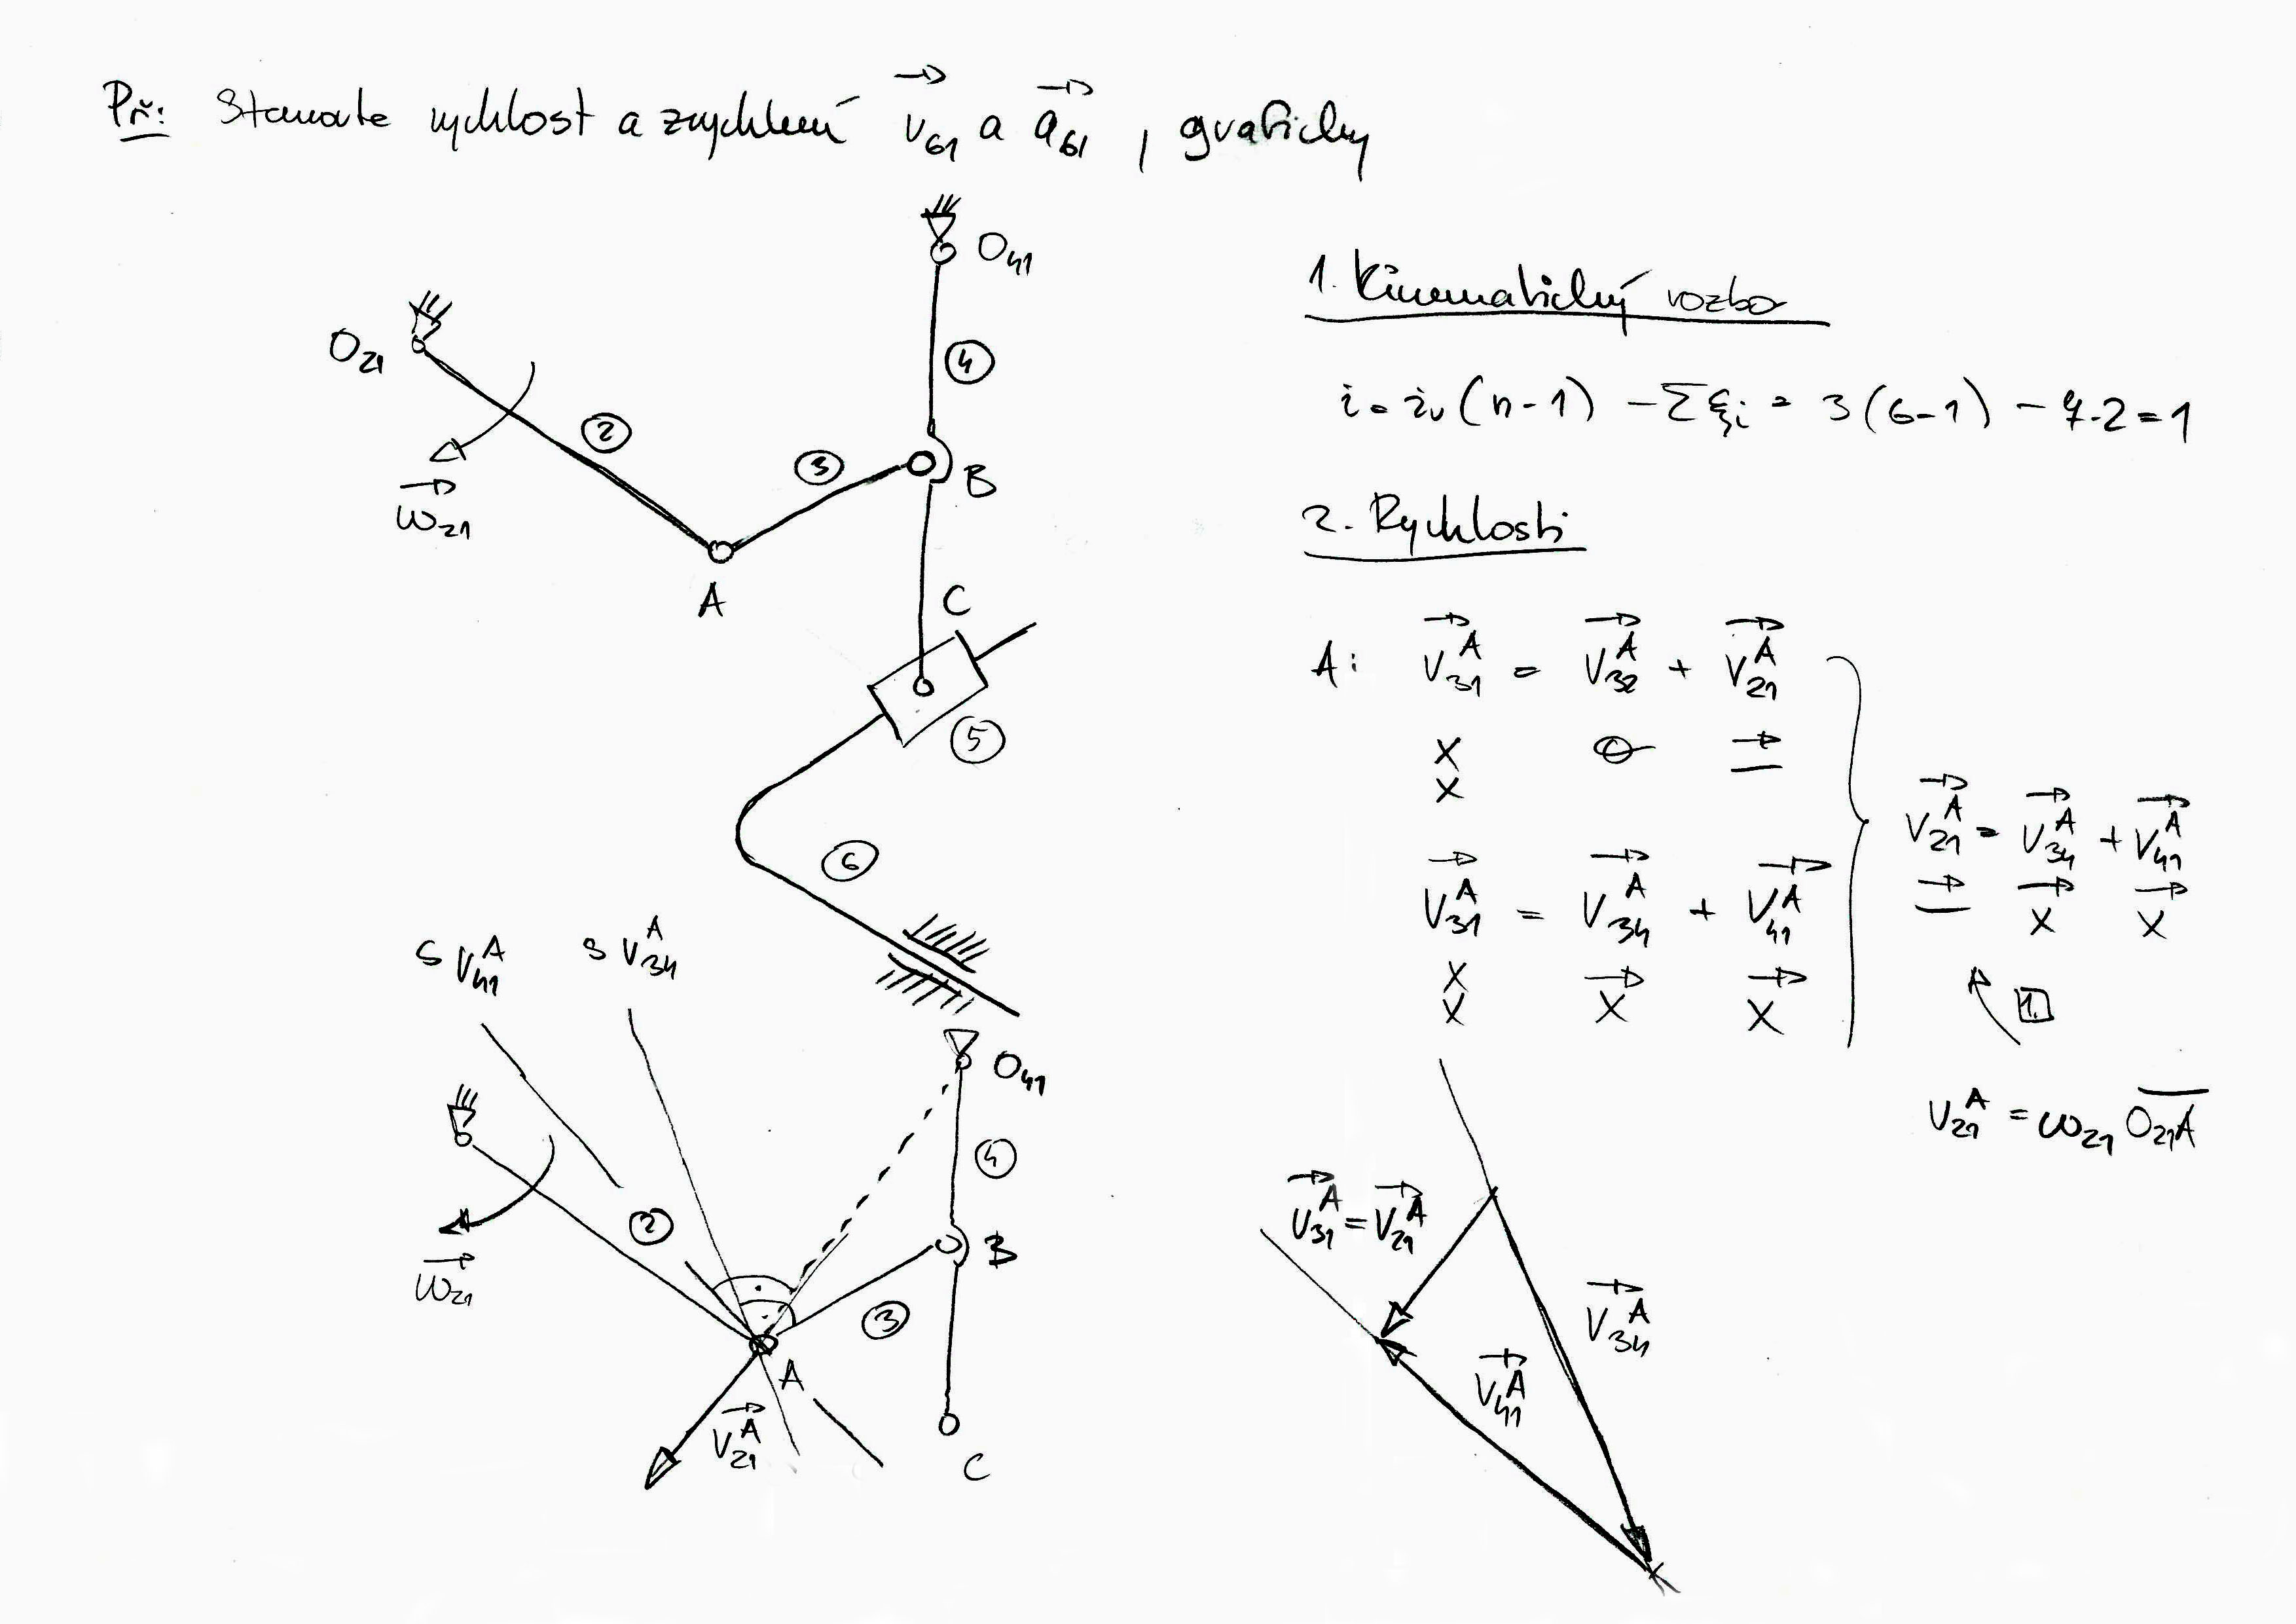 Př: Stanovte rychlost a zrychlení v₆₁ a a₆₁, graficky
O₄₁
O₂₁
4
2
3
B
ω₂₁
A
C
5
6
1. Kinematický rozbor
i = iᵥ(n-1) - Σξᵢ = 3(6-1) - 7·2 = 1
2. Rychlosti
A: v₃₁ᴬ = v₃₂ᴬ + v₂₁ᴬ
x
x
v₃₁ᴬ = v₃₄ᴬ + v₄₁ᴬ
x x x
x
v₂₁ᴬ = v₃₄ᴬ + v₄₁ᴬ
x x
1.
v₂₁ᴬ = ω₂₁ O₂₁A
s v₄₁ᴬ s v₃₄ᴬ
O₄₁
4
2
B
ω₂₁
3
A
v₂₁ᴬ
C
v₃₁ᴬ = v₂₁ᴬ
v₃₄ᴬ
v₄₁ᴬ